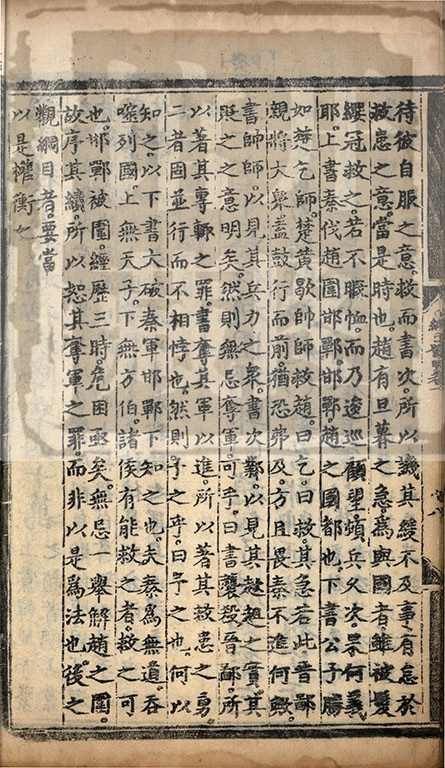 待彼自服之意救而書次所以譏其緩不及事有怠於
救患之意當是時也趙有旦暮之急爲與國者雖被髮
纓冠救之若不暇恤而乃逡巡顧望頓兵久次果何義
耶上書秦伐趙圍邯鄲邯鄲趙之國都也下書公子勝
如楚乞師楚黃歇帥師救趙曰乞曰救其急若此晉鄙
親將大衆蓋鼓行而前猶恐弗及方且畏秦不進何與
書帥師以見其兵力之衆書次鄴以見其趑趄之實其
貶之之意明矣然則無忌奪軍可乎曰書襲殺晉鄙所
以著其專輒之罪書奪其軍以進所以著其救患之勇
二者固並行而不相悖也然則予之乎曰予之也何以
知之以下書大破秦軍邯鄲下知之也夫秦爲無道吞
噬列國上無天子下無方伯諸侯有能救之者救之可
也邯鄲被圍經歷三時危困亟矣無忌一舉解趙之圍
故序其績所以恕其奪軍之罪而非以是爲法也後之
觀綱目者要當
以是權衡之